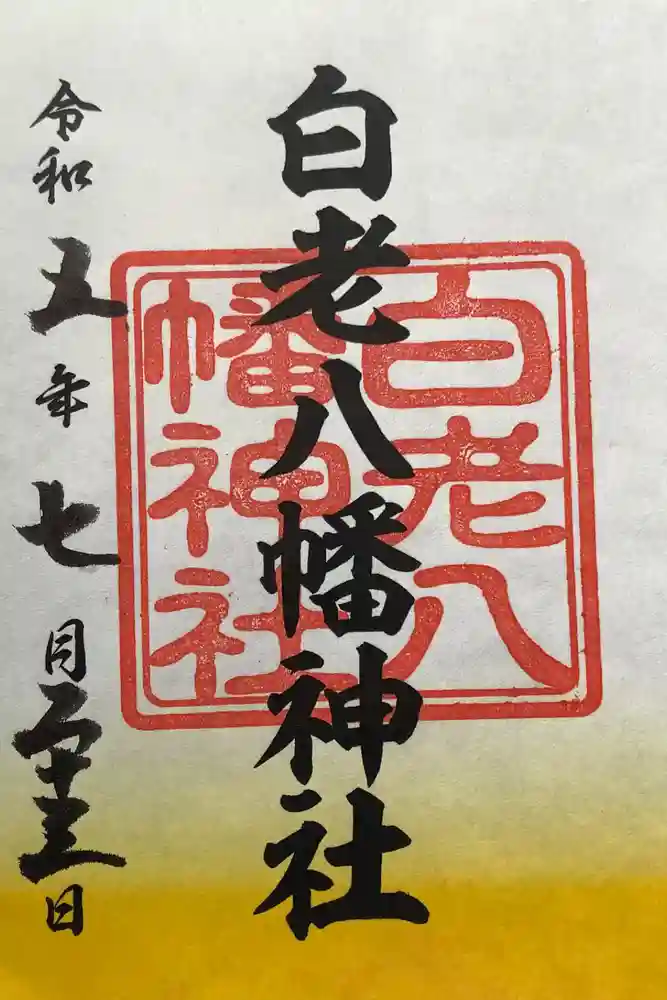 白老八幡神社
白老八
幡神社
令和五年七月二十三日